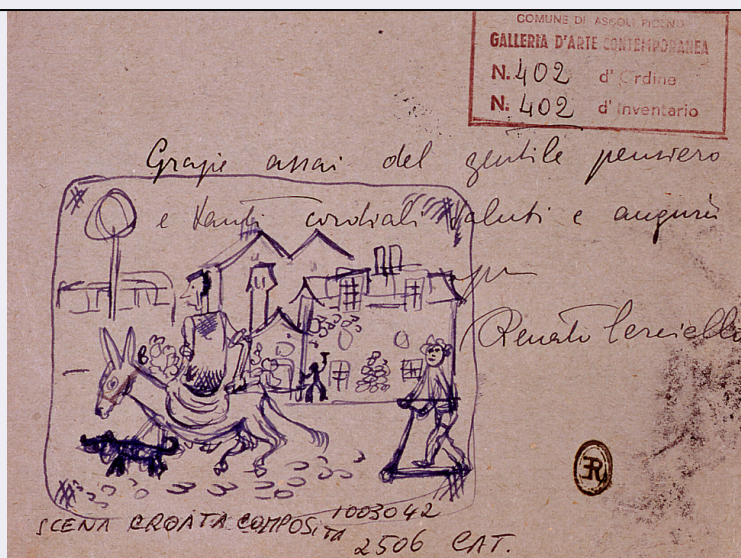 COMUNE DI ASCOLI PICENO
GALLERIA D'ARTE CONTEMPORANEA
N. 402 d'Ordine
N. 402 d'Inventario
Grazie assai del gentile pensiero
e tanti cordiali saluti e auguri
Renato
SCENA CROATA COMPOSITA 1003042
2506 CAT.